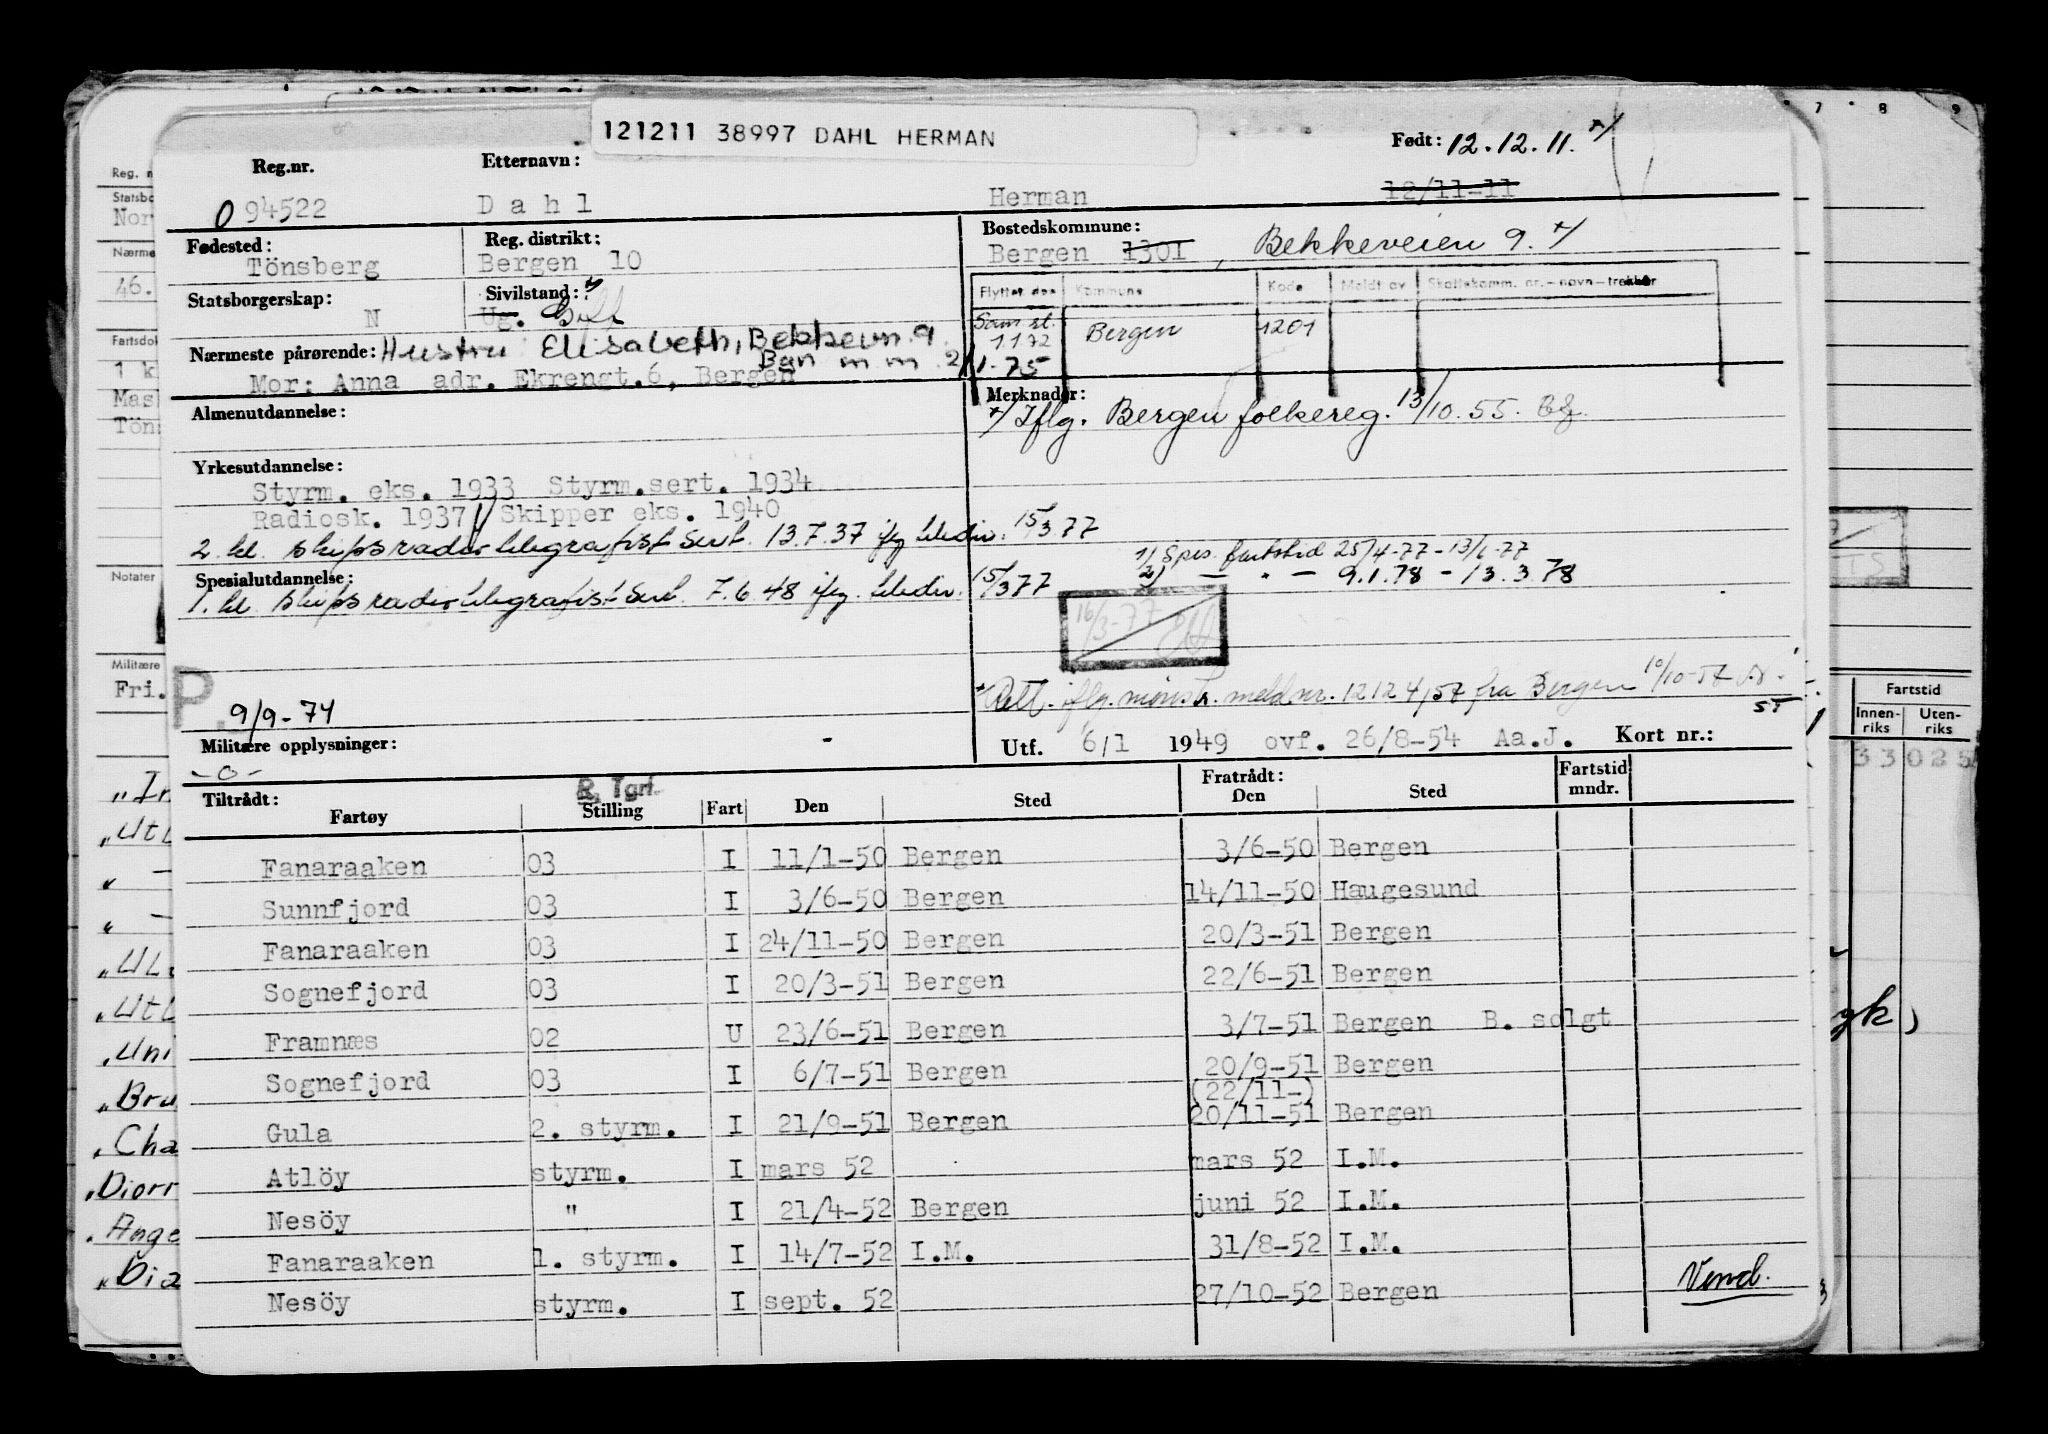 121211 38997 DAHL HERMAN
7 8 9
Reg.nr.
Etternavn:
Født: 12.12.11. x/
094522
Dahl
Herman
12/11-11
Fødested:
Tönsberg
Reg. distrikt:
Bergen 10
Bostedskommune:
Bergen 1301, Bekkeveien 9. x/
Statsborgerskap:
N
Sivilstand: x/
Ug. Gift
Flyttet den Kommune Kode Meldt av Skattekomm. nr. – navn – trekker
Sam st. 1172 Bergen 1201
Nærmeste pårørende: Hustru Elisabeth, Bekkevn. 9
Bgn m m 2/1.75
Mor: Anna adr. Ekrengt.6, Bergen
Almenutdannelse:
Merknader:
x/ Iflg. Bergen folkereg. 13/10.55.
Yrkesutdannelse:
Styrm. eks. 1933 Styrm.sert. 1934
Radiosk. 1937 Skipper eks. 1940
2. kl. skipsradiotelegrafist sert. 13.7.37 ifg teledir. 15/3 77
1) Spes. fartstid 25/4-77 - 13/6-77
2) — " — 9.1.78 - 13.3.78
Spesialutdannelse:
1. kl. skipsradiotelegrafist sert. 7.6.48 ifg. teledir. 15/3 77
16/3-77
Rett. iflg. mønstr. meld nr. 12124/57 fra Bergen 10/10-57
P.
9/9-74
Militære opplysninger:
-o-
Utf. 6/1 1949 ovf. 26/8-54 Aa.J. Kort nr.:
Tiltrådt:
Fartøy
R. Tgrf.
Stilling Fart Den Sted
Fratrådt:
Den Sted
Fartstid
mndr.
Fanaraaken 03 I 11/1-50 Bergen 3/6-50 Bergen
Sunnfjord 03 I 3/6-50 Bergen 14/11-50 Haugesund
Fanaraaken 03 I 24/11-50 Bergen 20/3-51 Bergen
Sognefjord 03 I 20/3-51 Bergen 22/6-51 Bergen
Framnæs 02 U 23/6-51 Bergen 3/7-51 Bergen B. solgt
Sognefjord 03 I 6/7-51 Bergen 20/9-51 Bergen
(22/11-)
Gula 2. styrm. I 21/9-51 Bergen 20/11-51 Bergen
Atlöy styrm. I mars 52 mars 52 I.M.
Nesöy " I 21/4-52 Bergen juni 52 I.M.
Fanaraaken 1. styrm. I 14/7-52 I.M. 31/8-52 I.M.
Nesöy styrm. I sept. 52 27/10-52 Bergen
Vend.
Reg. n
Statsbo
Nor
Nærme
46.
Fartsdok
1 k
Mas
Tön
Notater
Militære
Fri.
"In
"Utl
" —
" —
"Utl
"Uni
"Bru
"Cha
"Diorr
"Ange
"Dia
Fartstid
Innen-
riks
Uten-
riks
33 025
gk)